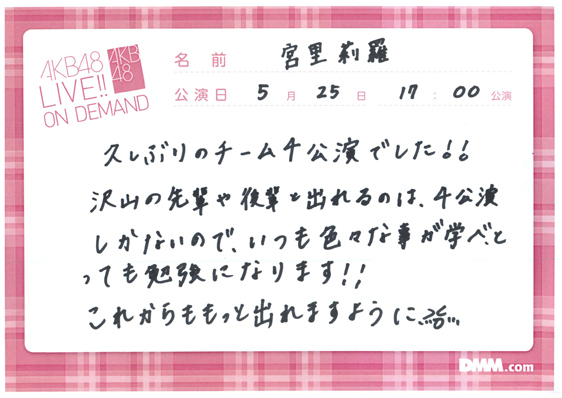 AKB48
LIVE!!
ON DEMAND
AKB
48
名前 宮里莉羅
公演日 5月25日 17:00公演
久しぶりのチーム4公演でした!!
沢山の先輩や後輩と出れるのは、4公演
しかないので、いつも色々な事が学べと
っても勉強になります!!
これからももっと出れますように
DMM.com